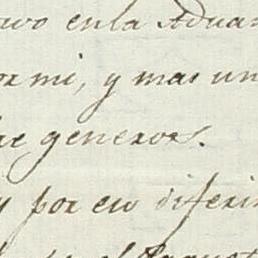 uvo enla Aduan
or mi, y mas un
re generos.
y por en diferin